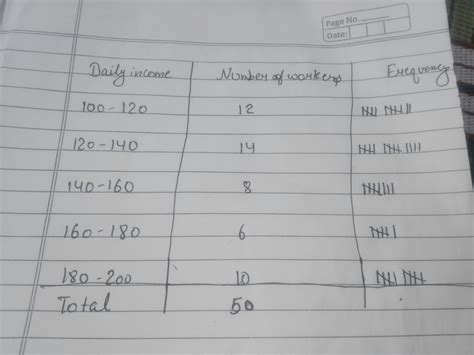 Page No.
Date:
Daily income Number of workers Frequency
100-120 12 𝍸 𝍸||
120-140 14 𝍸 𝍸||||
140-160 8 𝍸|||
160-180 6 𝍸|
180-200 10 𝍸 𝍸
Total 50